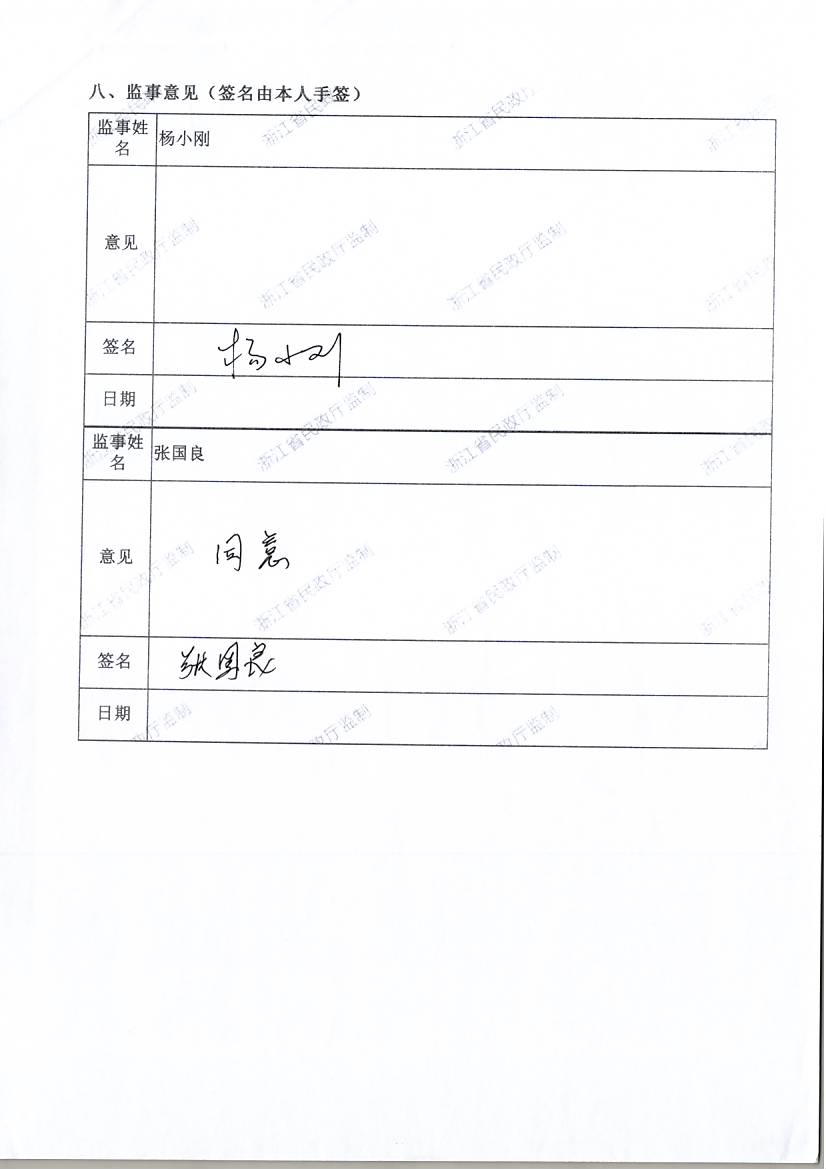 八、监事意见（签名由本人手签）
监事姓名 杨小刚
意见
签名 杨小刚
日期
监事姓名 张国良
意见 同意
签名 张国良
日期
浙江省民政厅监制